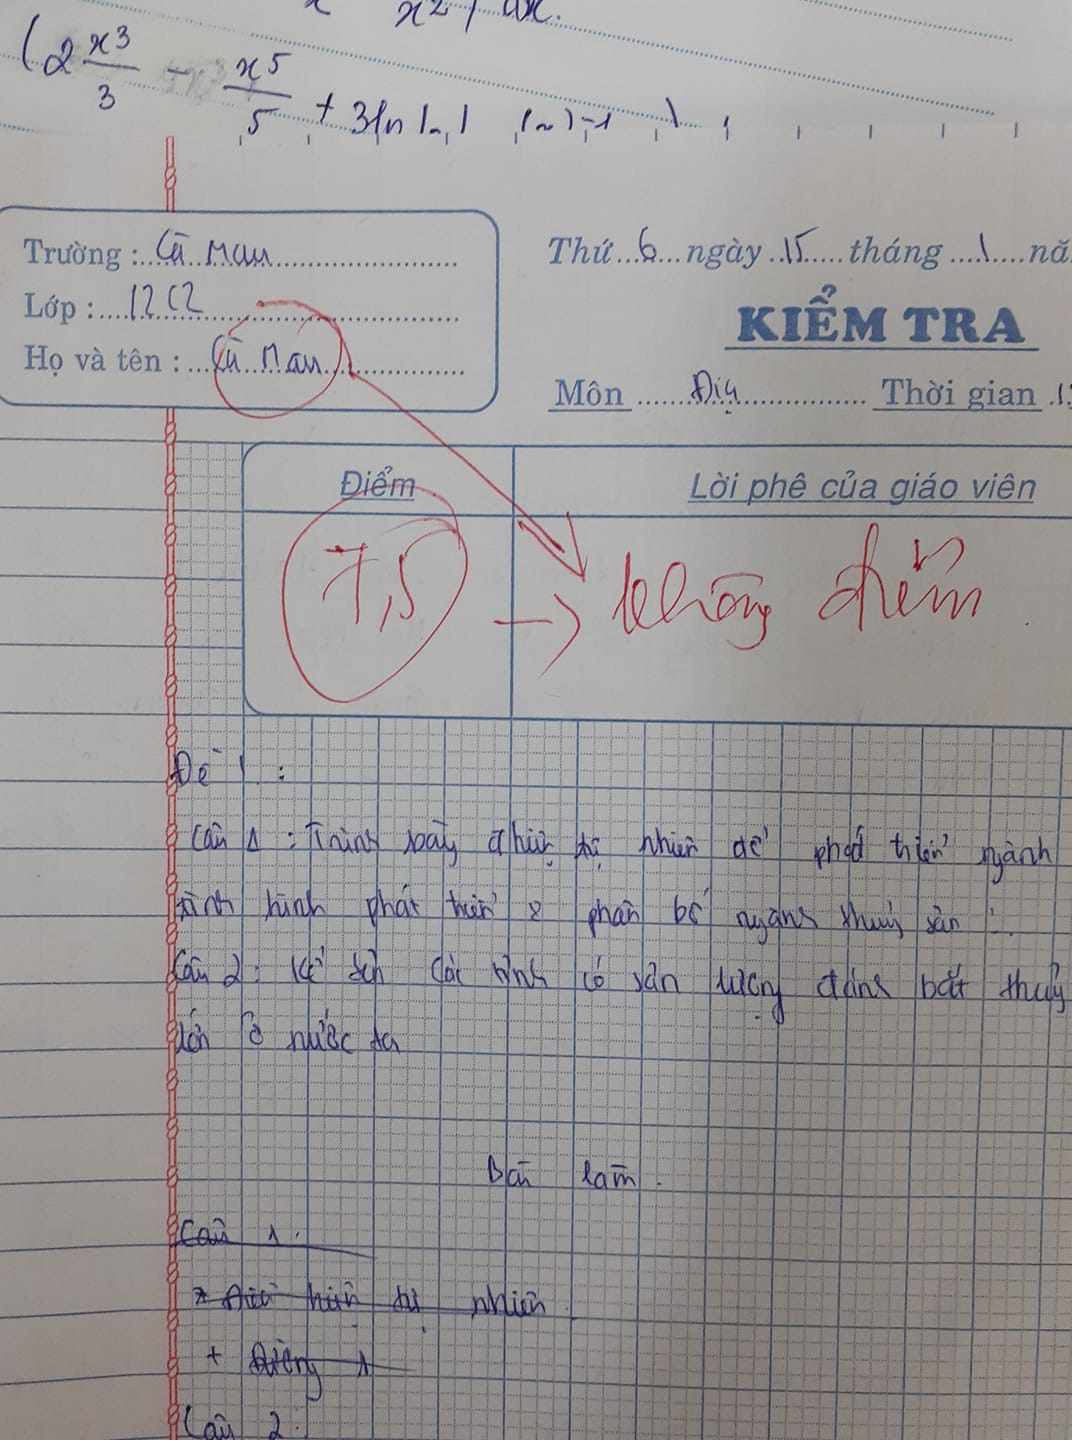 x² ) dx.
(2 x³/3 - x⁵/5 + 3ln
Trường : Cà Mau
Thứ 6 ngày 15 tháng 1 nă
Lớp : 12C2
KIỂM TRA
Họ và tên : Cà Mau
Môn Địa Thời gian
Điểm
Lời phê của giáo viên
7,5 → không điểm
Đề 1 :
Câu 1 : Trình bày tự nhiên để phát triển ngành
tình hình phát triển & phân bố ngành thuỷ sản
Câu 2 : Kể các tỉnh có sản lượng đánh bắt thuỷ
lớn ở nước ta
Bài làm.
Câu 1.
* Điều kiện tự nhiên
+
Câu 2.